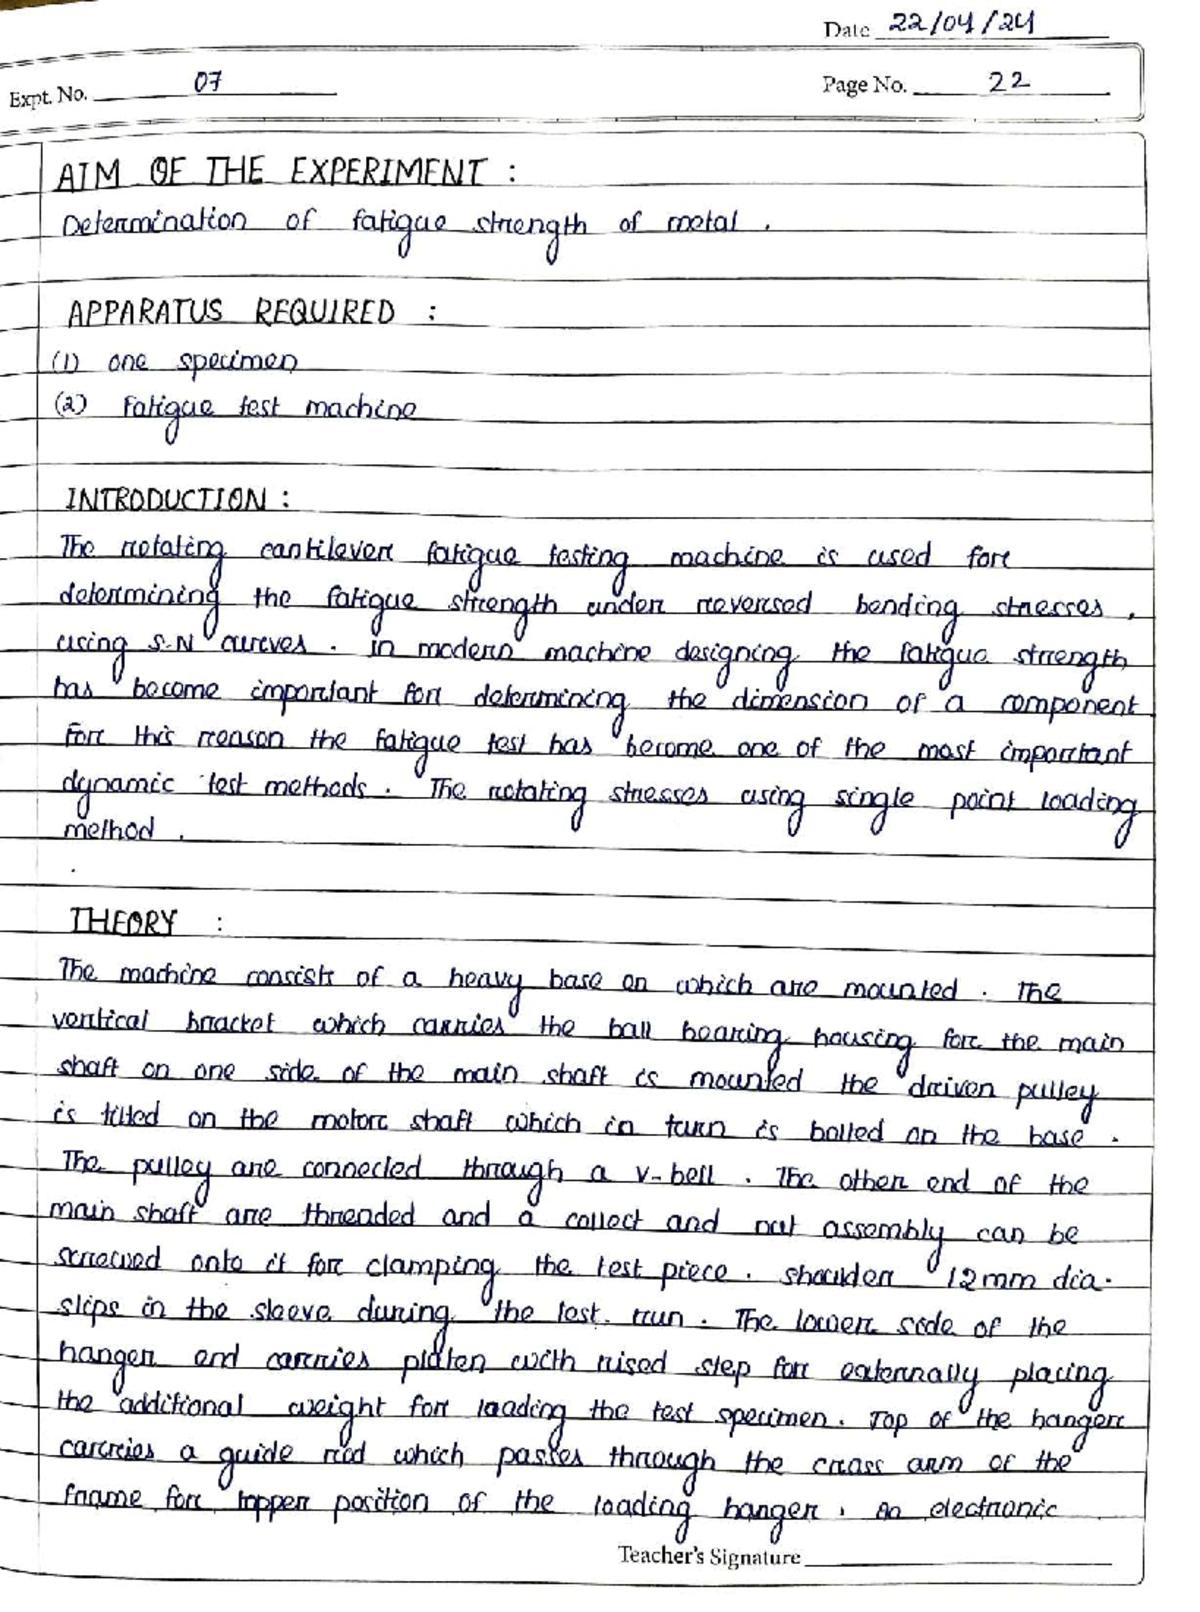 Date 22/04/24
Expt. No. 07
Page No. 22
AIM OF THE EXPERIMENT :
Determination of fatigue strength of metal .
APPARATUS REQUIRED :
(1) one specimen
(2) Fatigue test machine
INTRODUCTION :
The rotating cantilever fatigue testing machine is used for
determining the fatigue strength under reversed bending stresses ,
using S-N curves . in modern machine designing the fatigue strength
has become important for determining the dimension of a component
For this reason the fatigue test has become one of the most important
dynamic test methods . The rotating stresses using single point loading
method .
THEORY :
The machine consists of a heavy base on which are mounted . The
vertical bracket which carries the ball bearing housing for the main
shaft on one side of the main shaft is mounted the driven pulley
is tilled on the motor shaft which in turn is bolled on the base .
The pulley are connected through a v-bell . The other end of the
main shaft are threaded and a collect and nut assembly can be
screwed onto it for clamping the test piece . shoulder 12mm dia.
slips in the sleeve during the test run . The lower side of the
hanger end carries platen with rised step for externally placing
the additional weight for loading the test specimen . Top of the hanger
carries a guide rod which passes through the cross arm of the
frame for topper position of the loading hanger . An electronic
Teacher's Signature